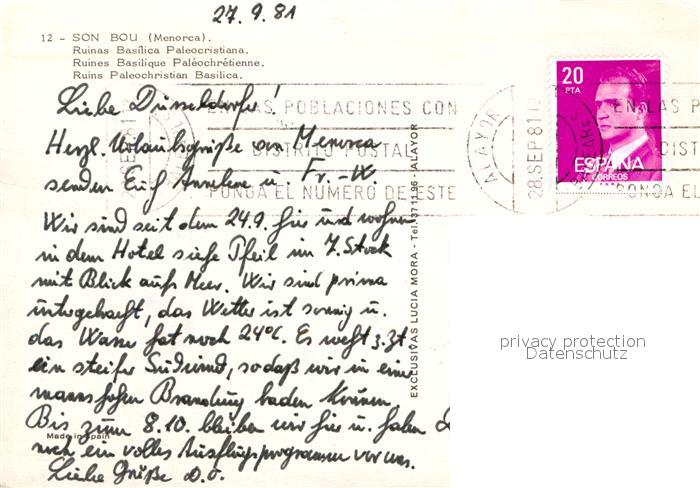 27.9.81
12 - SON BOU (Menorca).
Ruinas Basílica Paleocristiana.
Ruines Basilique Paléochrétienne.
Ruins Paleochristian Basilica.
Liebe Düsseldorfer!
Herzl. Urlaubsgrüße von Menorca
senden Euch Annelene u. Fr.-W.
Wir sind seit dem 24.9. hier und wohnen
in dem Hotel siehe Pfeil im 7. Stock
mit Blick aufs Meer. Wir sind prima
untergebracht, das Wetter ist sonnig u.
das Wasser hat noch 24°C. Es weht z.Zt.
ein steifer Südwind, sodaß wir in einer
mannshohen Brandung baden können.
Bis zum 8.10. bleiben wir hier u. haben
noch ein volles Ausflugsprogramm vor uns.
Liebe Grüße d.O.
Made in Spain
EXCLUSIVAS LUCIA MORA - Tel. 37 11 96 - ALAYOR
EN LAS POBLACIONES CON
DISTRITO POSTAL
PONGA EL NUMERO DE ESTE
ALAYOR
28 SEP 81
BALEARES
20
PTA
ESPAÑA
CORREOS
EN LAS P
DIST
PONGA EL
privacy protection
Datenschutz